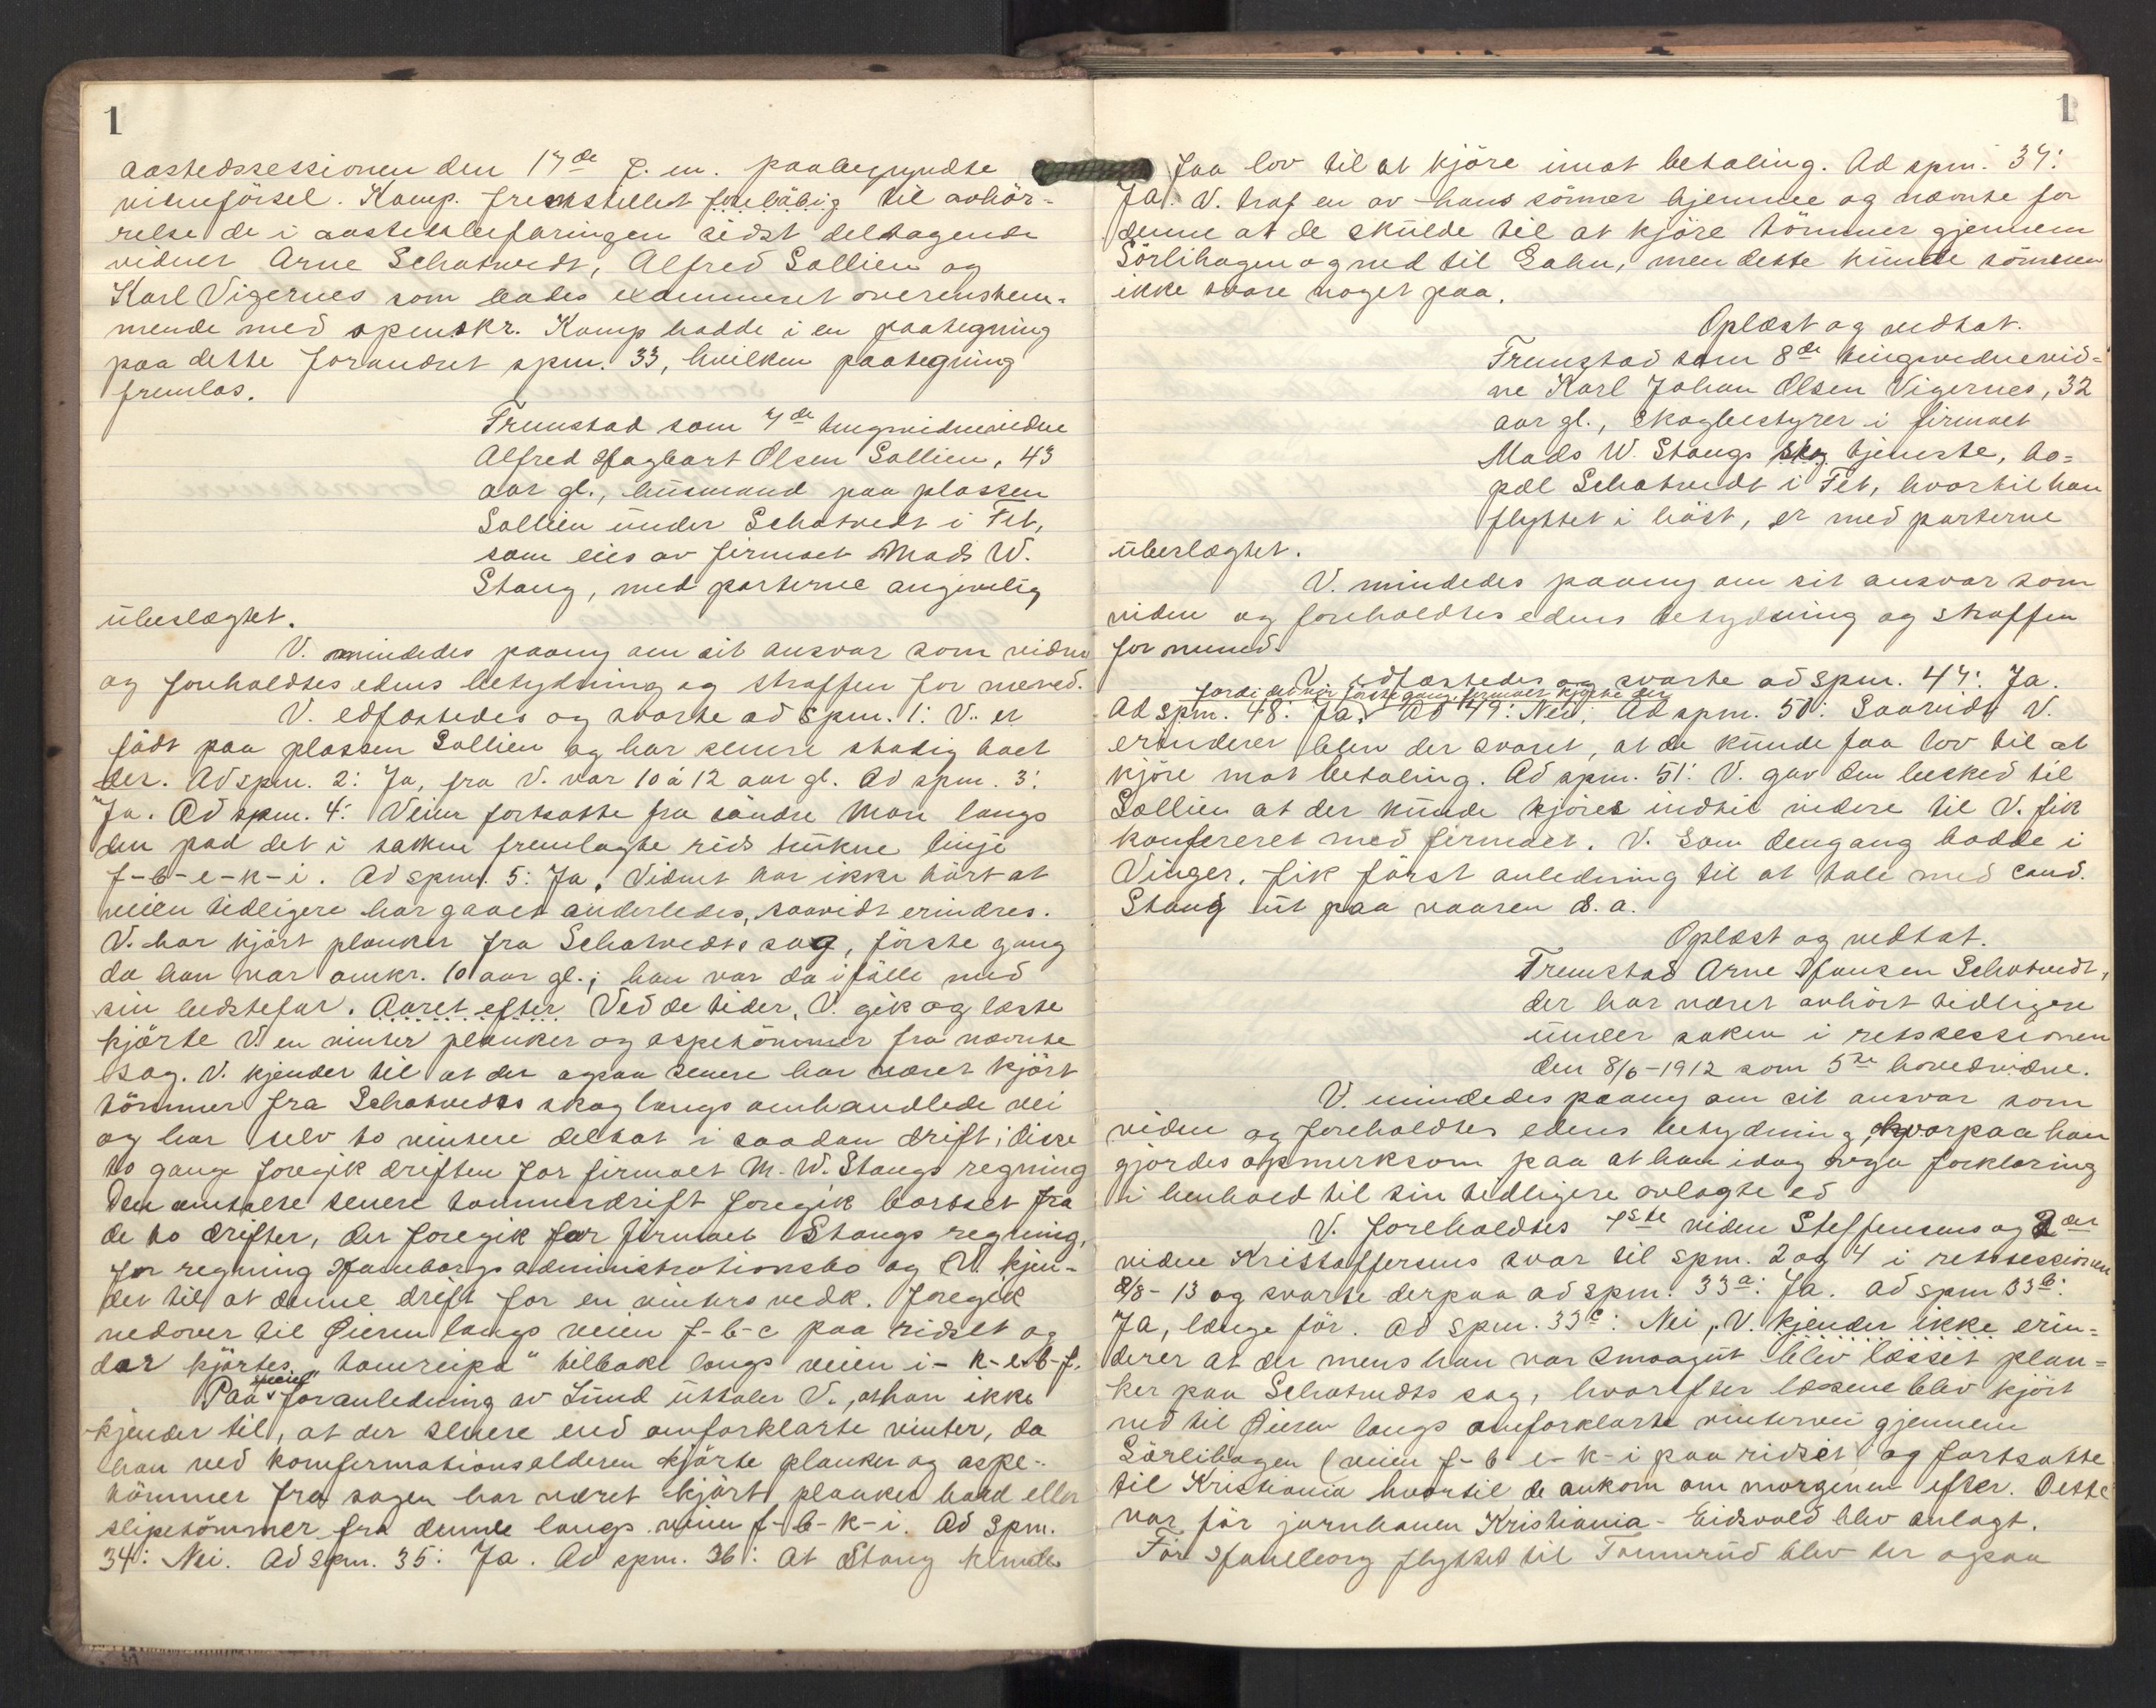 1
aastedssessionen den 17de f. m. paabegyndte
vidneførsel. Kamp. fremstillet foreløbig til avhör-
relse de i aastedsbefaringen sidst deltagende
vidner Arne Schatvedt, Alfred Sollien og
Karl Vigernes som bades examineret overenstem-
mende med spmskr. Kamp hadde i en paategning
paa dette forandret spm. 33, hvilken paategning
fremlas.
Fremstod som 7de tingsvidnevidne
Alfred Hagbart Olsen Sollien, 43
aar gl., husmand paa plassen
Sollien under Schatvedt i Fet,
som eies av firmaet Mads W.
Stang, med parterne angivelig
ubeslægtet.
V. mindedes paany om sit ansvar som vidne
og foreholdtes edens betydning og straffen for mened.
V. edfæstedes og svarte ad spm. 1: V. er
födt paa plassen Sollien og har senere stadig boet
der. Ad spm. 2: Ja, fra V. var 10 à 12 aar gl. Ad spm. 3:
Ja. Ad spm. 4: Veien fortsatte fra söndre Mon langs
den paa det i saken fremlagte rids trukne linje
f-b-e-k-i. Ad spm. 5: Ja. Vidnet har ikke hört at
veien tidligere har gaaet anderledes, saavidt erindres.
V. har kjört planker fra Schatvedts sag, förste gang
da han var omkr. 10 aar gl.; han var da i fölle med
sin bedstefar. Aaret efter Ved de tider, V. gik og læste
kjörte V. en vinter planker og aspetömmer fra nævnte
sag. V. kjender til at der ogsaa senere har været kjört
tömmer fra Schatvedts skog langs omhandlede vei
og har selv to vintere deltat i saadan drift; disse
to gange foregik driften for firmaet M. W. Stangs regning
Den omtalte senere tömmerdrift foregik bortset fra
de to drifter, der foregik for firmaet Stangs regning,
for regning Haneborgs administrationsbo og V. kjen-
der til at denne drift for en vinters vedk. foregik
nedover til Øieren langs veien f-b-c paa ridset og
der kjörtes "tomreipa" tilbake langs veien i-k-e-b-f.
Paa speciel foranledning av Lund uttaler V., at han ikke
kjender til, at der senere end omforklarte vinter, da
han ved konfirmationsalderen kjörte planker og aspe-
tömmer fra sagen har været kjört planker hved eller
slipetömmer fra denne langs veien f-b-k-i. Ad spm.
34: Nei. Ad spm. 35: Ja. Ad spm. 36: At Stang kunde
1
faa lov til at kjöre imot betaling. Ad spm. 37:
Ja. V. traf en av hans sönner hjemme og nævnte for
denne at de skulde til at kjöre tömmer gjennem
Sörlihagen og ned til Gahn, men dette kunde sönnen
ikke svare noget paa.
Oplæst og vedtat.
Fremstod som 8de tingsvidnevid-
ne Karl Johan Olsen Vigernes, 32
aar gl., skogbestyrer i firmaet
Mads W. Stangs skog tjeneste, bo-
pæl Schatvedt i Fet, hvortil han
flyttet i höst, er med parterne
ubeslægtet.
V. mindedes paany om sit ansvar som
vidne og foreholdtes edens betydning og straffen
for mened.
V. edfæstedes og svarte ad spm. 47: Ja.
fordi det var förste gang firmaet kjörte der
Ad spm. 48: Ja. Ad 49: Nei. Ad spm. 50: Saavidt V.
erinderer blev der svaret, at de kunde faa lov til at
kjöre mot betaling. Ad spm. 51: V. gav den besked til
Sollien at der kunde kjöres indtil videre til V. fik
konfereret med firmaet. V. som dengang bodde i
Vinger, fik först anledning til at tale med cand.
Stang ut paa vaaren s. a.
Oplæst og vedtat.
Fremstod Arne Hansen Schatvedt,
der har været avhört tidligere
under saken i retssessionen
den 8/6-1912 som 5te hovedvidne.
V. mindedes paany om sit ansvar som
vidne og foreholdtes edens betydning, hvorpaa han
gjordes opmerksom paa at han idag avga forklaring
i henhold til sin tidligere avlagte ed
V. foreholdtes 1ste vidne Steffensens og 2det
vidne Kristoffersens svar til spm. 2 og 4 i retssessionen
8/8-13 og svarte derpaa ad spm. 33a: Ja. Ad spm 33b:
Ja, længe för. Ad spm. 33c: Nei, V. kjender ikke erin-
derer at der mens han var smaagut blev læsset plan-
ker paa Schatvedts sag, hvorefter læssene blev kjört
ned til Øieren langs omforklarte vintervei gjennem
Sörlihagen (veien f-b-e-k-i paa ridset) og fortsatte
til Kristiania hvortil de ankom om morgenen efter. Dette
var för jernbanen Kristiania-Eidsvold blev anlagt.
För Haneborg flyttet til Tommerud blev der ogsaa